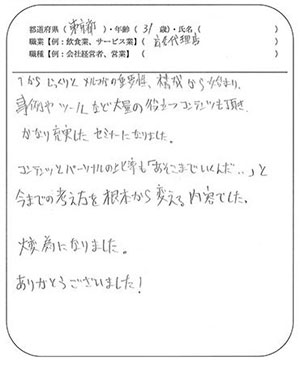 都道府県（東京都）・年齢（31歳）・氏名（　　）
職業【例：飲食業、サービス業】（広告代理店）
職種【例：会社経営者、営業】（　　）
1からじっくりとメルマガの重要性、構成から始まり、
事例やツールなど大量の役立つコンテンツも頂き、
かなり充実したセミナーになりました。
コンテンツとパーソナルの比率も「あそこまでいくんだ・・」と
今までの考え方を根本から変える内容でした。
大変為になりました。
ありがとうございました！